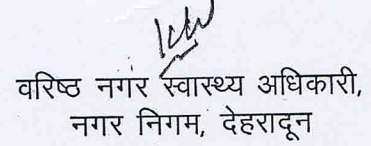 वरिष्ठ नगर स्वास्थ्य अधिकारी,
नगर निगम, देहरादून